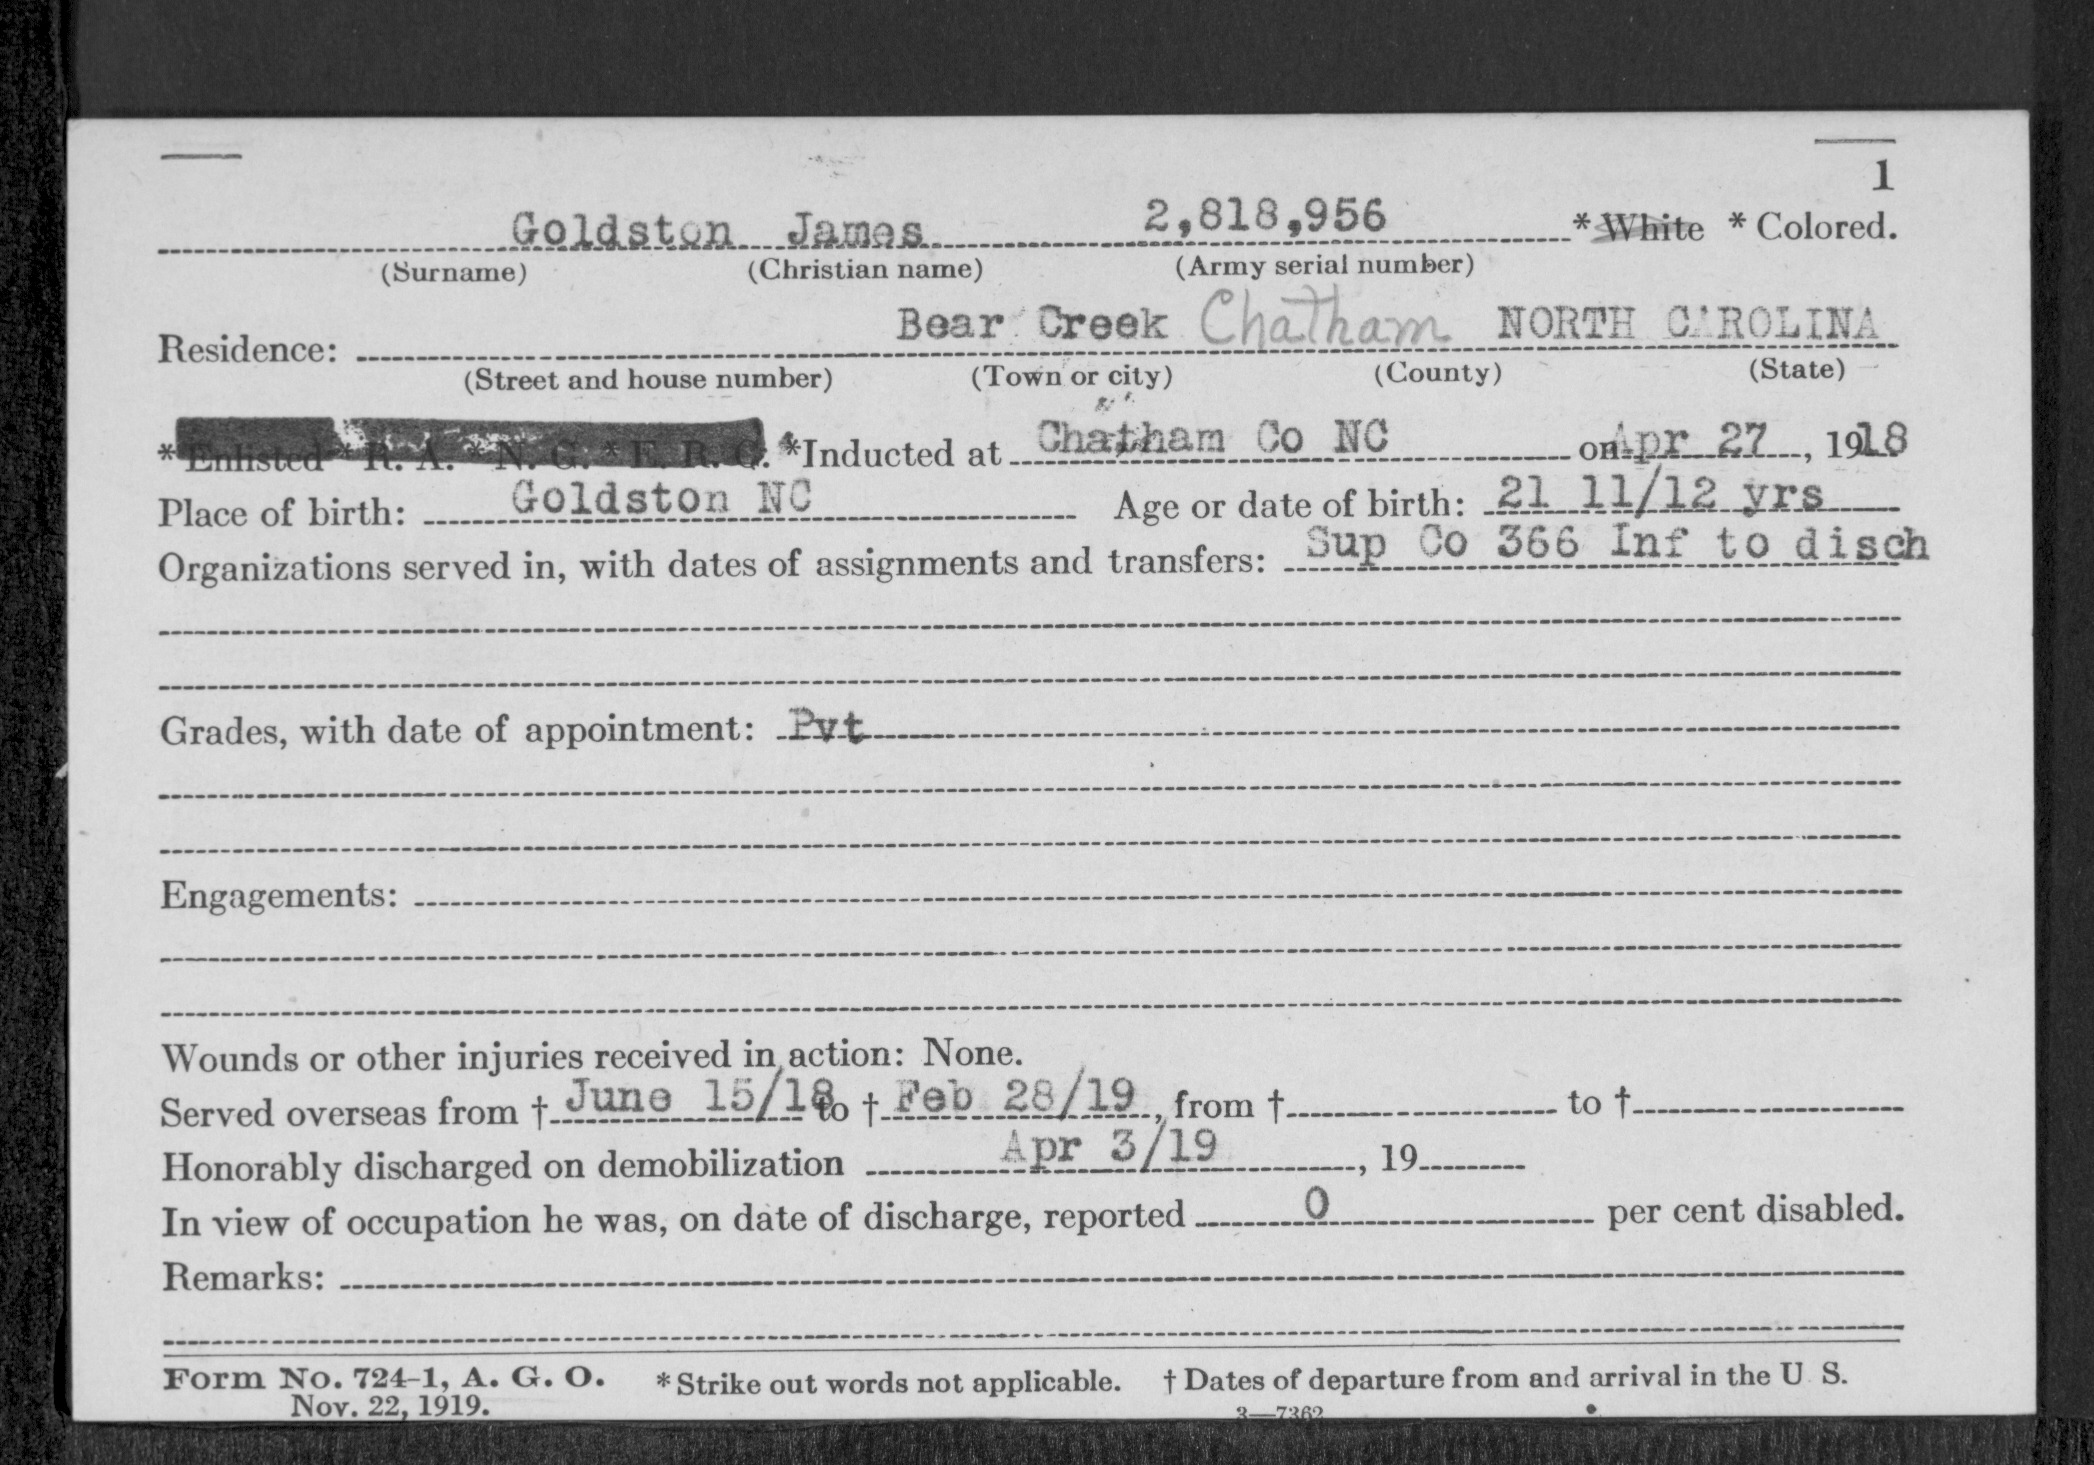 1
Goldston James 2,818,956 * White * Colored.
(Surname) (Christian name) (Army serial number)
Residence: Bear Creek Chatham NORTH CAROLINA
(Street and house number) (Town or city) (County) (State)
* Enlisted * R. A. * N. G. * E. R. C. *Inducted at Chatham Co NC on Apr 27, 1918
Place of birth: Goldston NC Age or date of birth: 21 11/12 yrs
Organizations served in, with dates of assignments and transfers: Sup Co 366 Inf to disch
Grades, with date of appointment: Pvt
Engagements:
Wounds or other injuries received in action: None.
Served overseas from † June 15/18 to † Feb 28/19, from † to †
Honorably discharged on demobilization Apr 3/19, 19
In view of occupation he was, on date of discharge, reported 0 per cent disabled.
Remarks:
Form No. 724-1, A. G. O. * Strike out words not applicable. † Dates of departure from and arrival in the U S.
Nov. 22, 1919. 3—7362